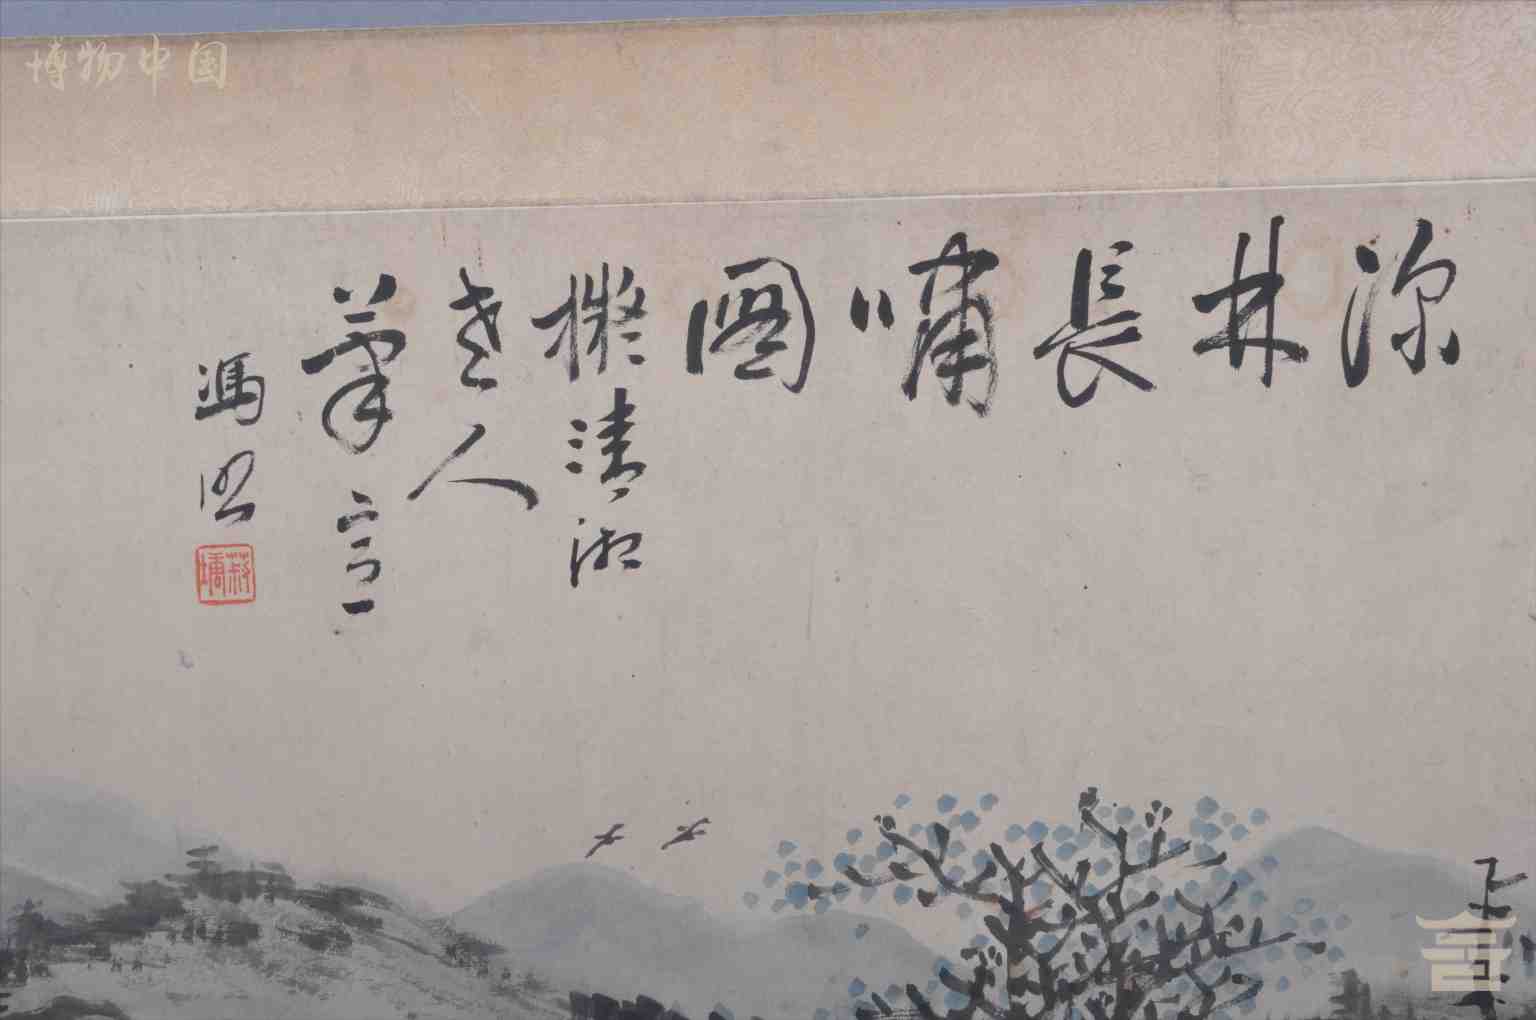 深林長嘯圖
擬清湘
老人
筆意
馮照
博物中国